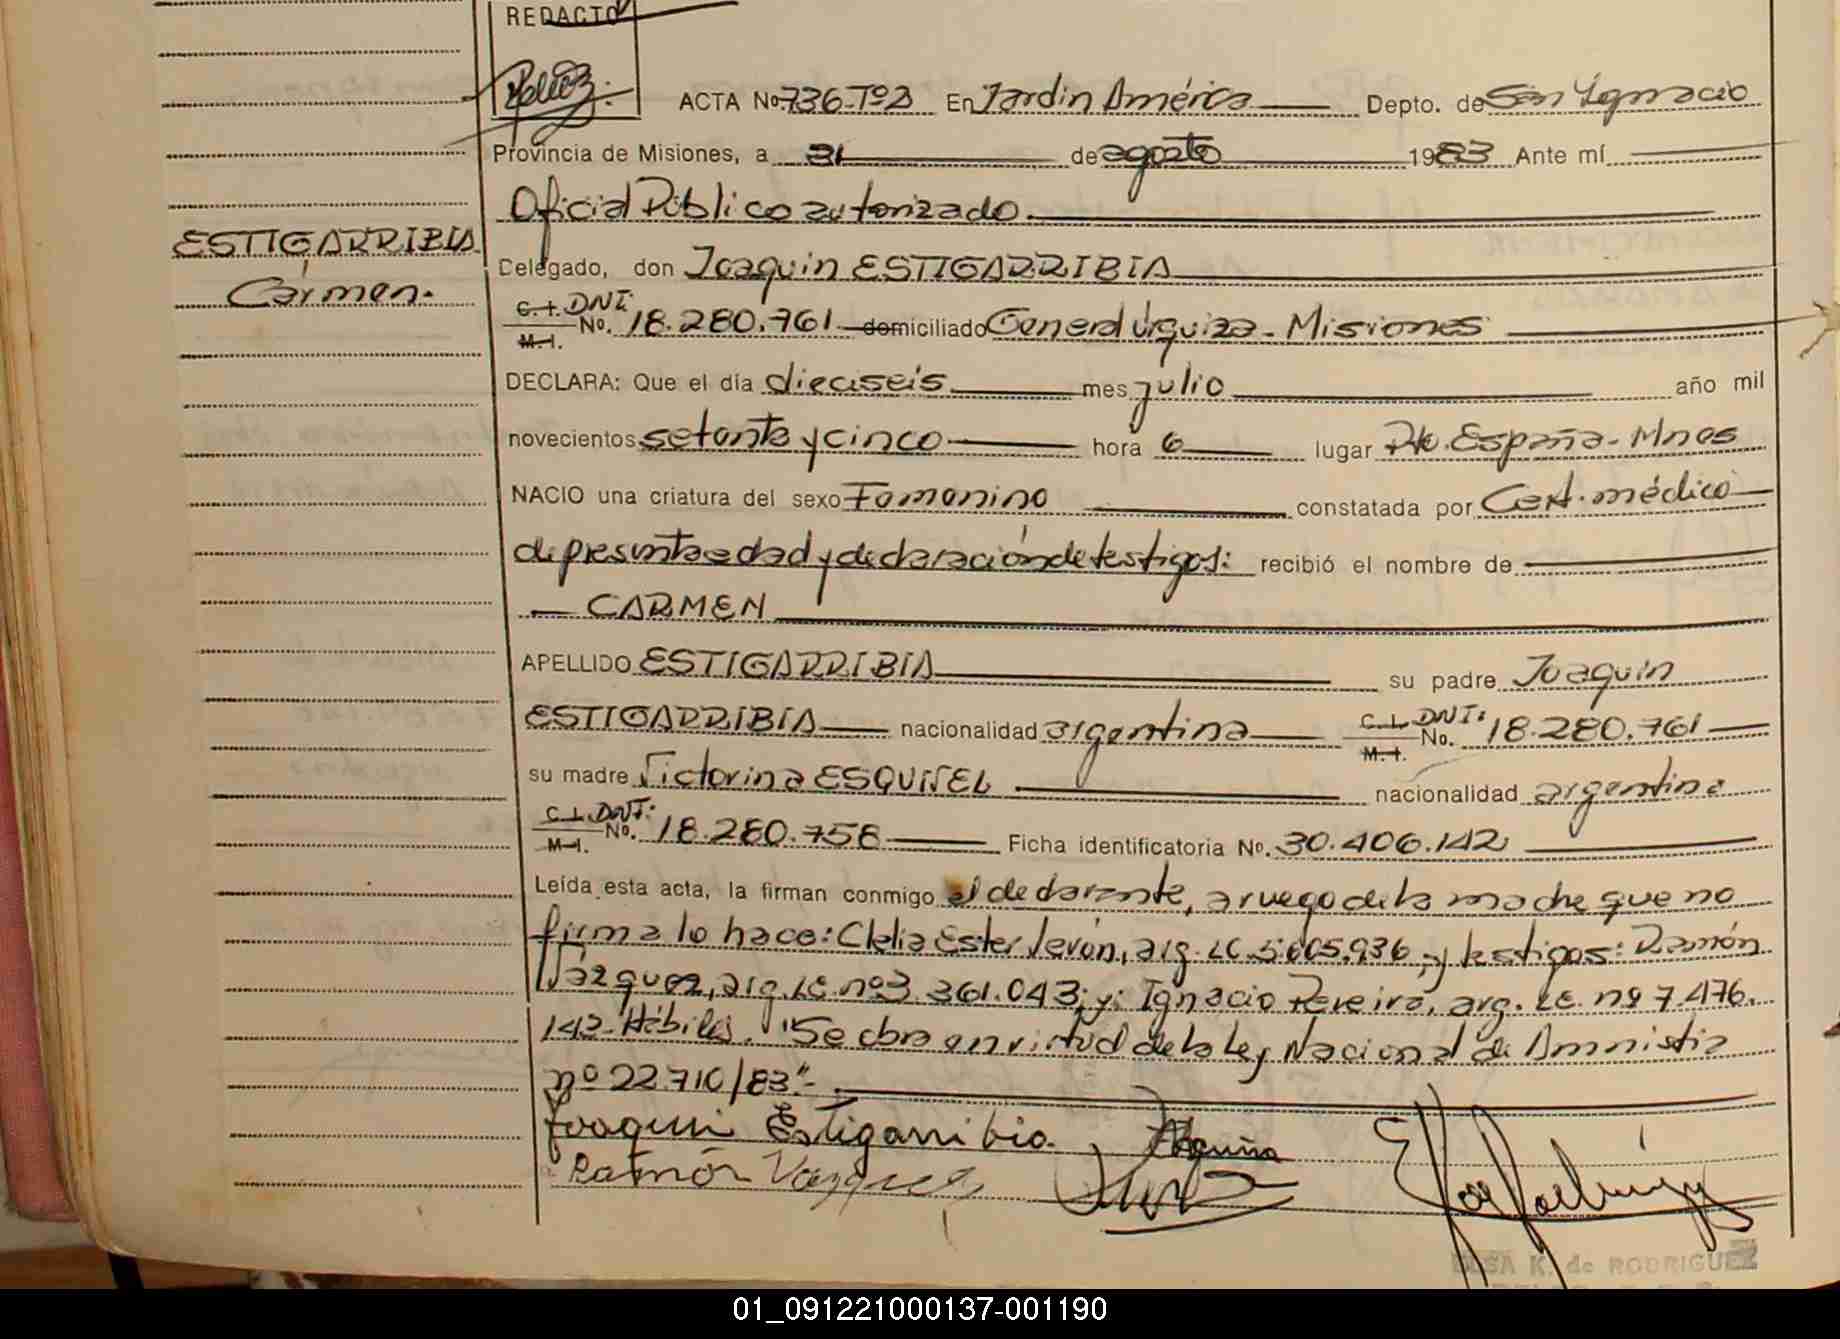 REDACTO
ACTA No. 736-Tº2 En Jardin América Depto. de San Ignacio
Provincia de Misiones, a 31 de agosto 1983 Ante mí
Oficial Público autorizado.
ESTIGARRIBIA
Carmen.
Delegado, don Joaquin ESTIGARRIBIA
C.I. DNI: M.I. No. 18.280.761 domiciliado General Urquiza - Misiones
DECLARA: Que el día dieciseis mes julio año mil
novecientos setenta y cinco hora 6 lugar Pto. España - Mnes
NACIO una criatura del sexo Femenino constatada por Cert. médico
de presunta edad y declaración de testigos: recibió el nombre de
CARMEN
APELLIDO ESTIGARRIBIA su padre Joaquin
ESTIGARRIBIA nacionalidad argentina C.I. DNI: M.I. No. 18.280.761
su madre Victorina ESQUIVEL nacionalidad argentina
C.I. DNI: M.I. No. 18.280.758 Ficha identificatoria No. 30.406.142
Leída esta acta, la firman conmigo el declarante, a ruego de la madre que no
firma lo hace: Clelia Ester Jevón, arg. LC. 5.605.936, y testigos: Ramón
Vázquez, arg. LE. nº 3.361.043; y: Ignacio Pereira, arg. LE. nº 7.476.
142- Hábiles. "Se obra en virtud de la Ley Nacional de Amnistia
nº 22.710/83".-
Joaquin Estigarribia.
Ramón Vazquez
ELSA K. de RODRIGUEZ
01_091221000137-001190